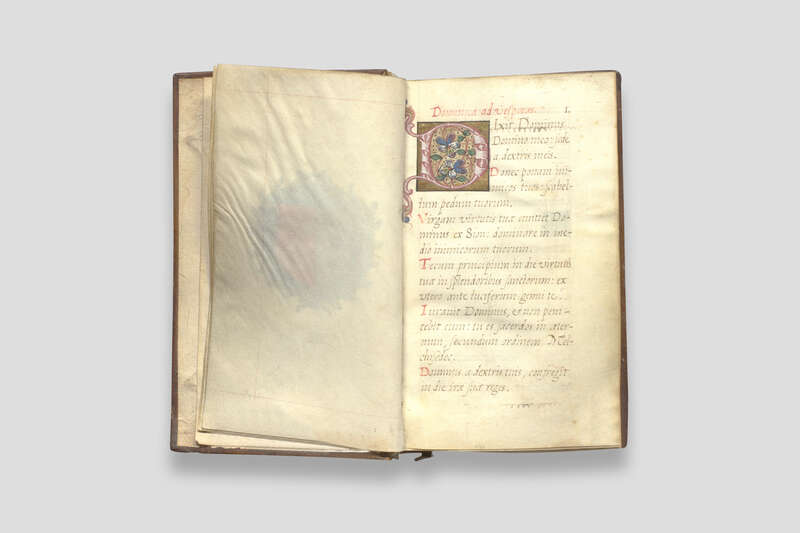 Dominica ad Vesperas. 1.
Dixit Dominus
Domino meo: sede
a dextris meis.
Donec ponam ini-
micos tuos: scabel-
lum pedum tuorum.
Virgam virtutis tuæ emittet Do-
minus ex Sion: dominare in me-
dio inimicorum tuorum.
Tecum principium in die virtutis
tuæ in splendoribus sanctorum: ex
vtero ante luciferum genui te.
Iurauit Dominus, & non peni-
tebit eum: tu es sacerdos in æter-
num, secundum ordinem Mel-
chisedec.
Dominus a dextris tuis, confregit
in die iræ suæ reges.